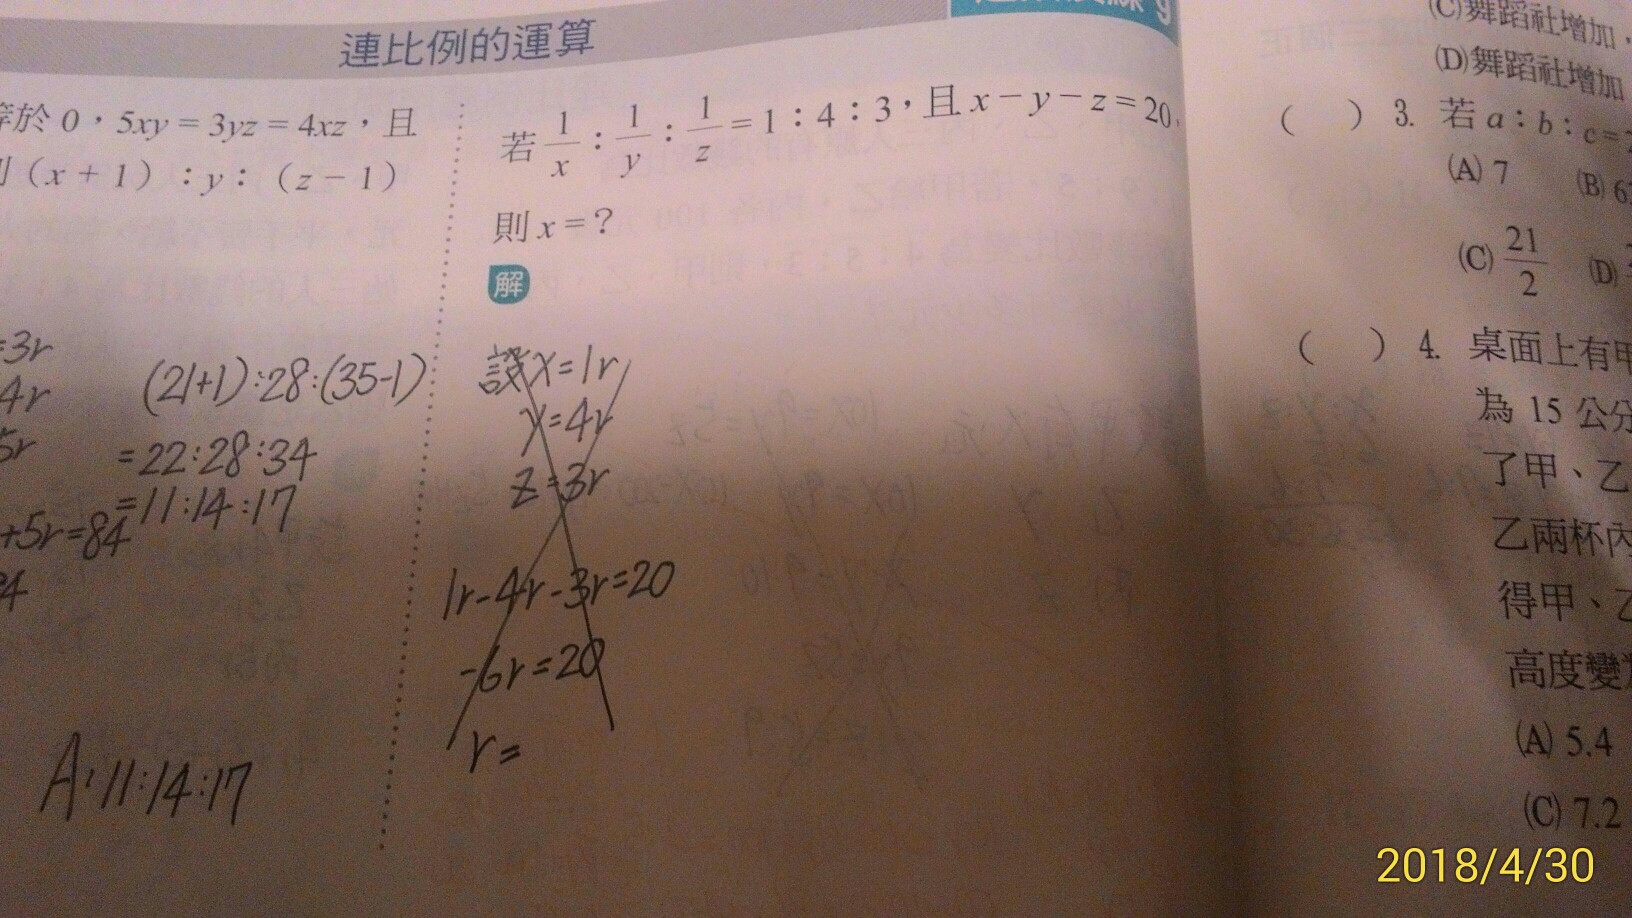 連比例的運算
9
等於 0，5xy = 3yz = 4xz，且
(x + 1) : y : (z − 1)
=3r
4r
5r
(21+1):28:(35-1)
=22:28:34
=11:14:17
+5r=84
A:11:14:17
若 1/x : 1/y : 1/z = 1 : 4 : 3，且 x − y − z = 20，
則 x = ？
解
設x=1r
y=4r
z=3r
1r-4r-3r=20
-6r=20
r=
(C)舞蹈社增加，
(D)舞蹈社增加
( ) 3. 若 a : b : c =
(A) 7 (B) 6
(C) 21/2 (D)
( ) 4. 桌面上有甲
為 15 公分
了甲、乙
乙兩杯內
得甲、乙
高度變為
(A) 5.4
(C) 7.2
2018/4/30